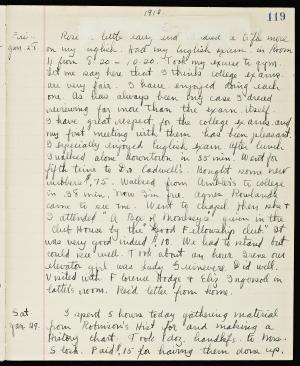 1918.
119
Fri.
Jan. 28.
Rose a little early and a little more
on my English. Had my English exam in Room
11 from 8:20 - 10:20. Took my excuse to gym.
Let me say here that I think college exams.
are very fair. I have enjoyed doing each
one. As has always been my case I dread
reviewing far more than the exam itself.
I have great respect for the college exams and
my first meeting with them has been pleasant.
I especially enjoyed English exam. After lunch
I walked alone downtown in 35 min. Went for
fifth time to Dr. Cadwell's. Bought some new
rubbers, .75. Walked from dentist's to college
in 35 min. Now I'm free. Agnes
came to see me. Went to chapel. Then she &
I attended "A Box of Monkeys" given in the
Club House by the "Good Fellowship Club." It
was very good indeed, .10. We had to stand but
could see well. Took about an hour. Irene our
elevator girl was Lady Guinevere. Did well.
Visited with Florence Hodge & Eliz Ingersoll in
latter's room. Rec'd letter from home.
Sat.
Jan. 29.
I spent 5 hours today gathering material
from Robinson's Hist for and making a
History chart. Took 1 doz. handkfs. to Mrs.
Stock. Paid .15 for having them done up.